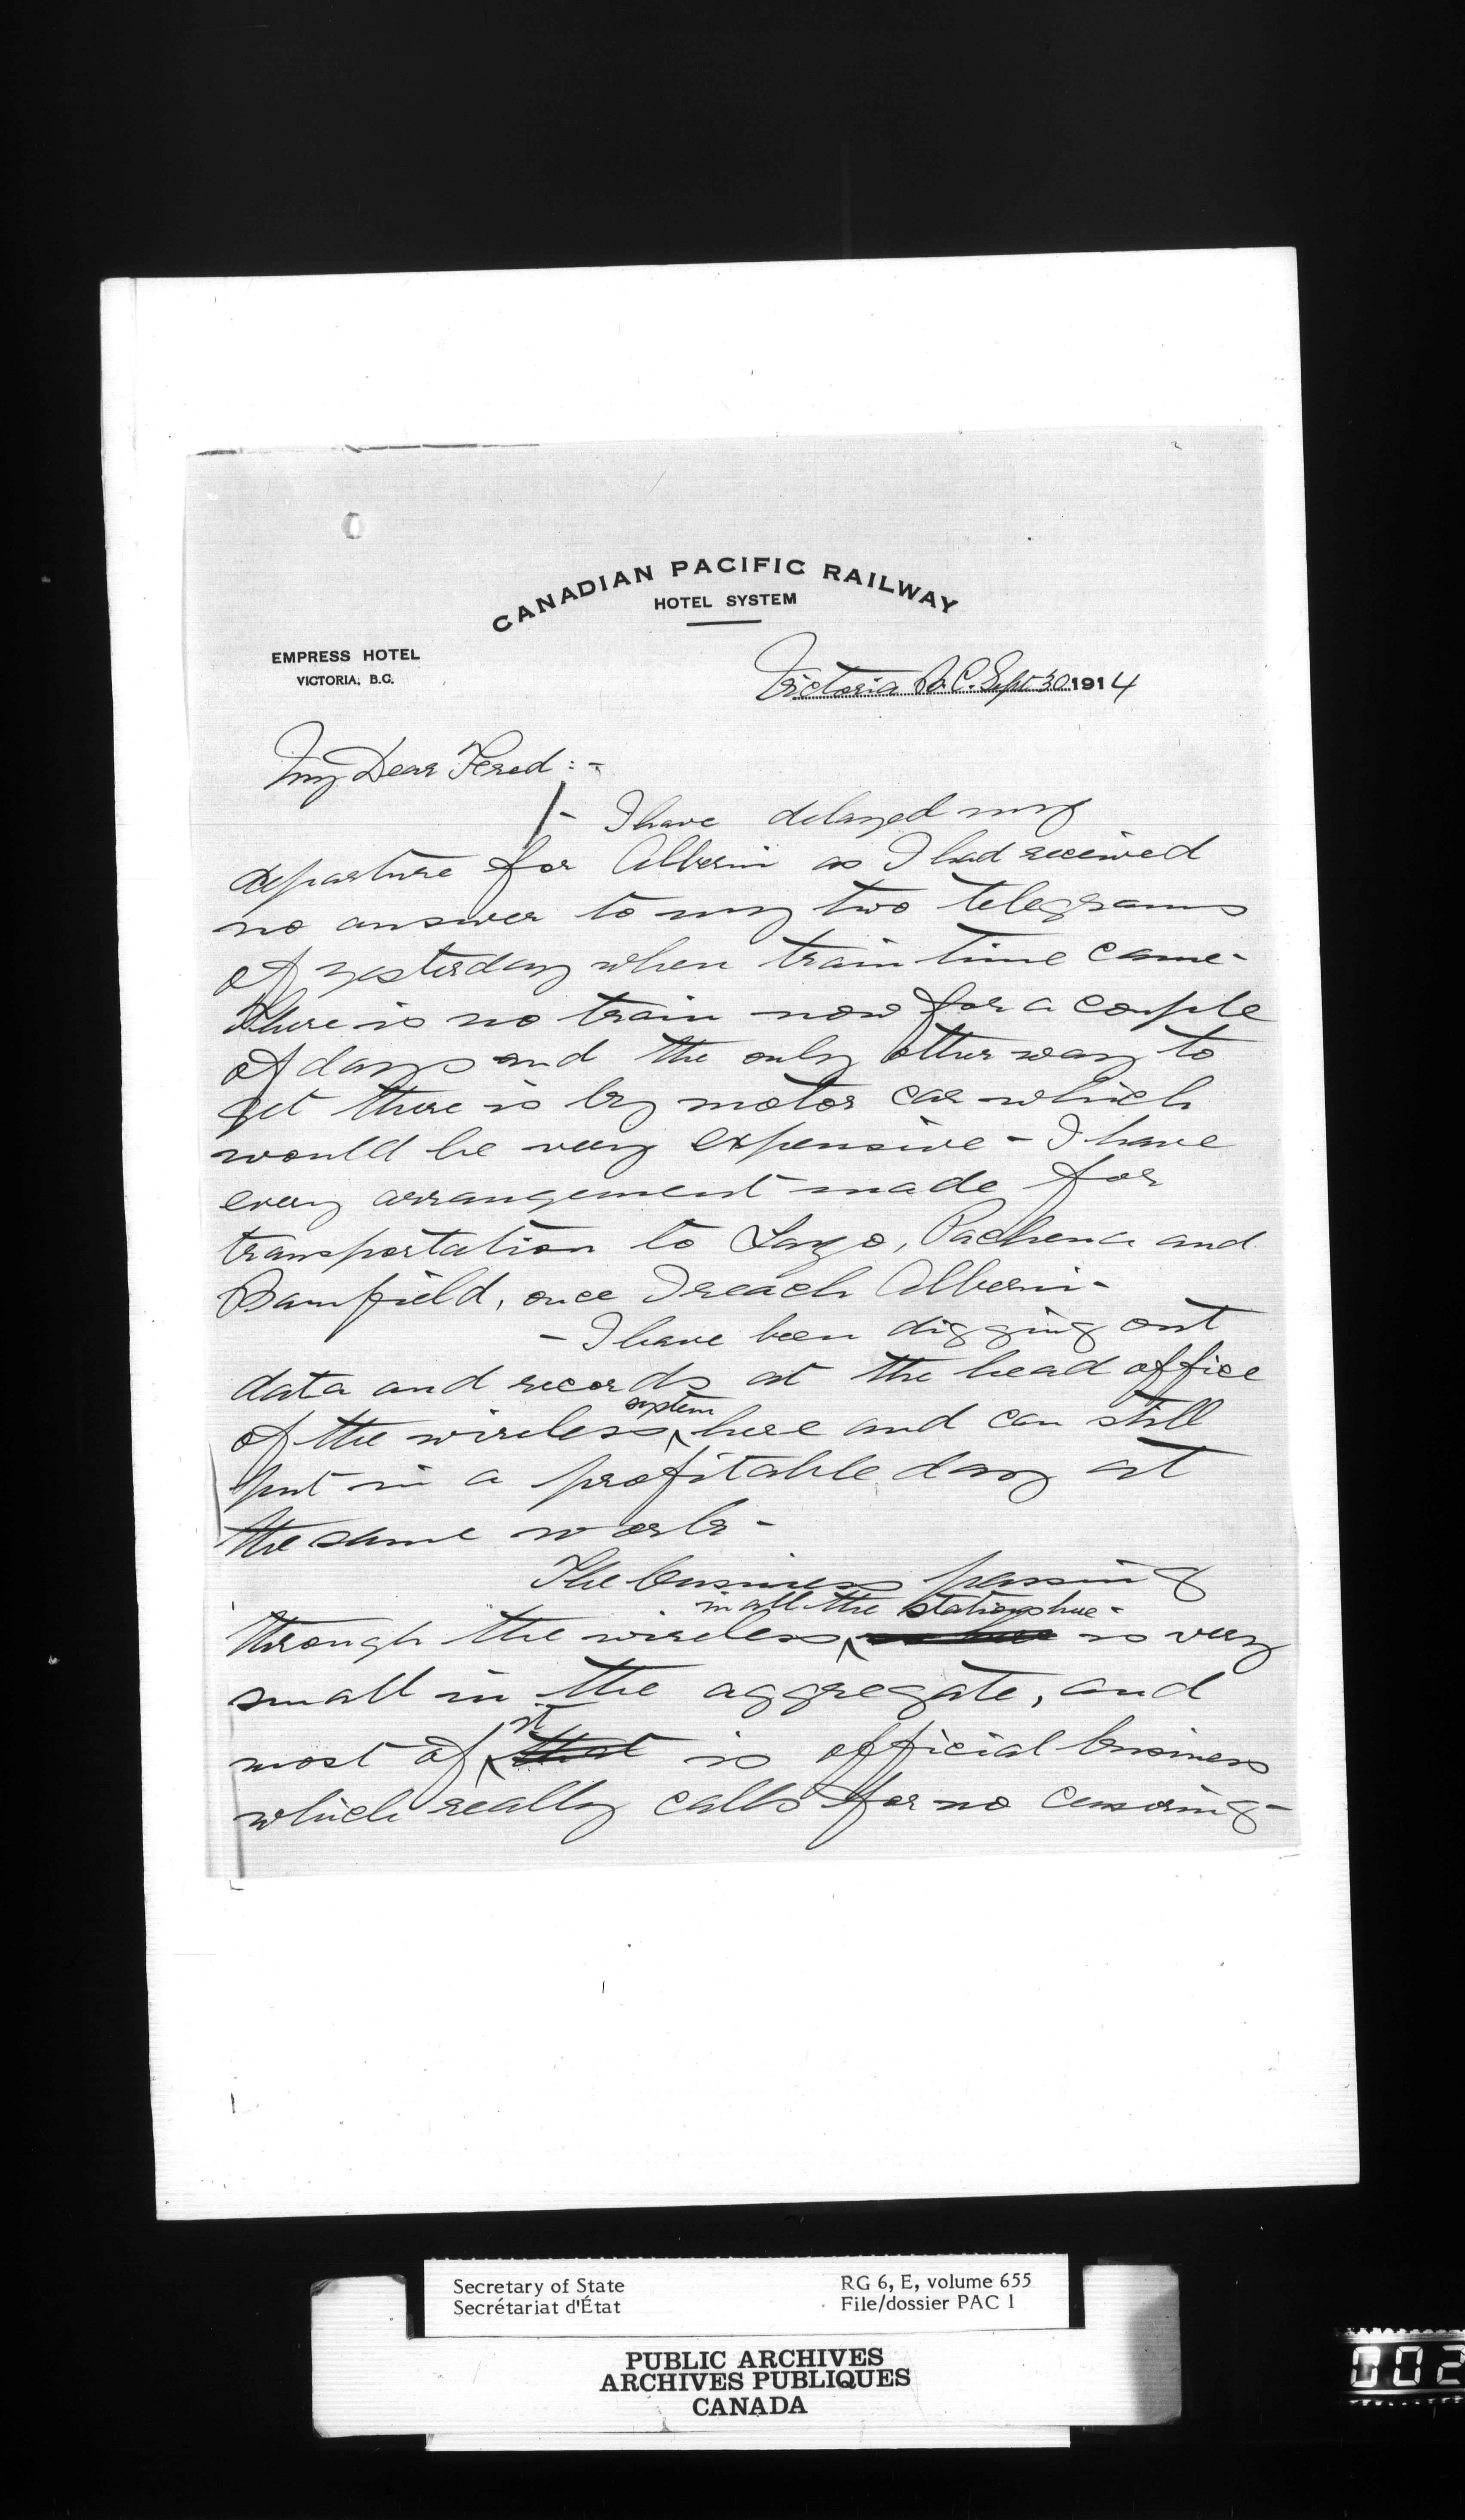 CANADIAN PACIFIC RAILWAY
HOTEL SYSTEM
EMPRESS HOTEL
VICTORIA, B.C.
Victoria B.C. Sept 30 1914
My Dear Fred :-
1- I have delayed my
departure for Alberni as I had received
no answer to my two telegrams
of yesterday when train time came -
There is no train now for a couple
of days and the only other way to
get there is by motor car which
would be very expensive - I have
every arrangement made for
transportation to Lazo, Pachena and
Bamfield, once I reach Alberni -
- I have been digging out
data and records at the head office
of the wireless system here and can still
put in a profitable day at
the same work -
The business passing
through the wireless in all the stations here - is very
small in the aggregate, and
most of it that is official business
which really calls for no censoring -
Secretary of State
Secrétariat d'État
RG 6, E, volume 655
File/dossier PAC 1
PUBLIC ARCHIVES
ARCHIVES PUBLIQUES
CANADA
002